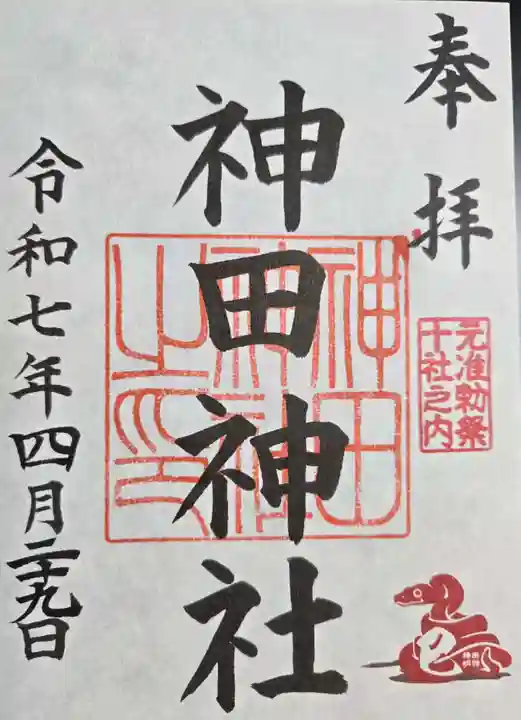 奉拝
元准勅祭
十社之内
神田神社
神田
神社
之印
巳
令和七年四月二十九日